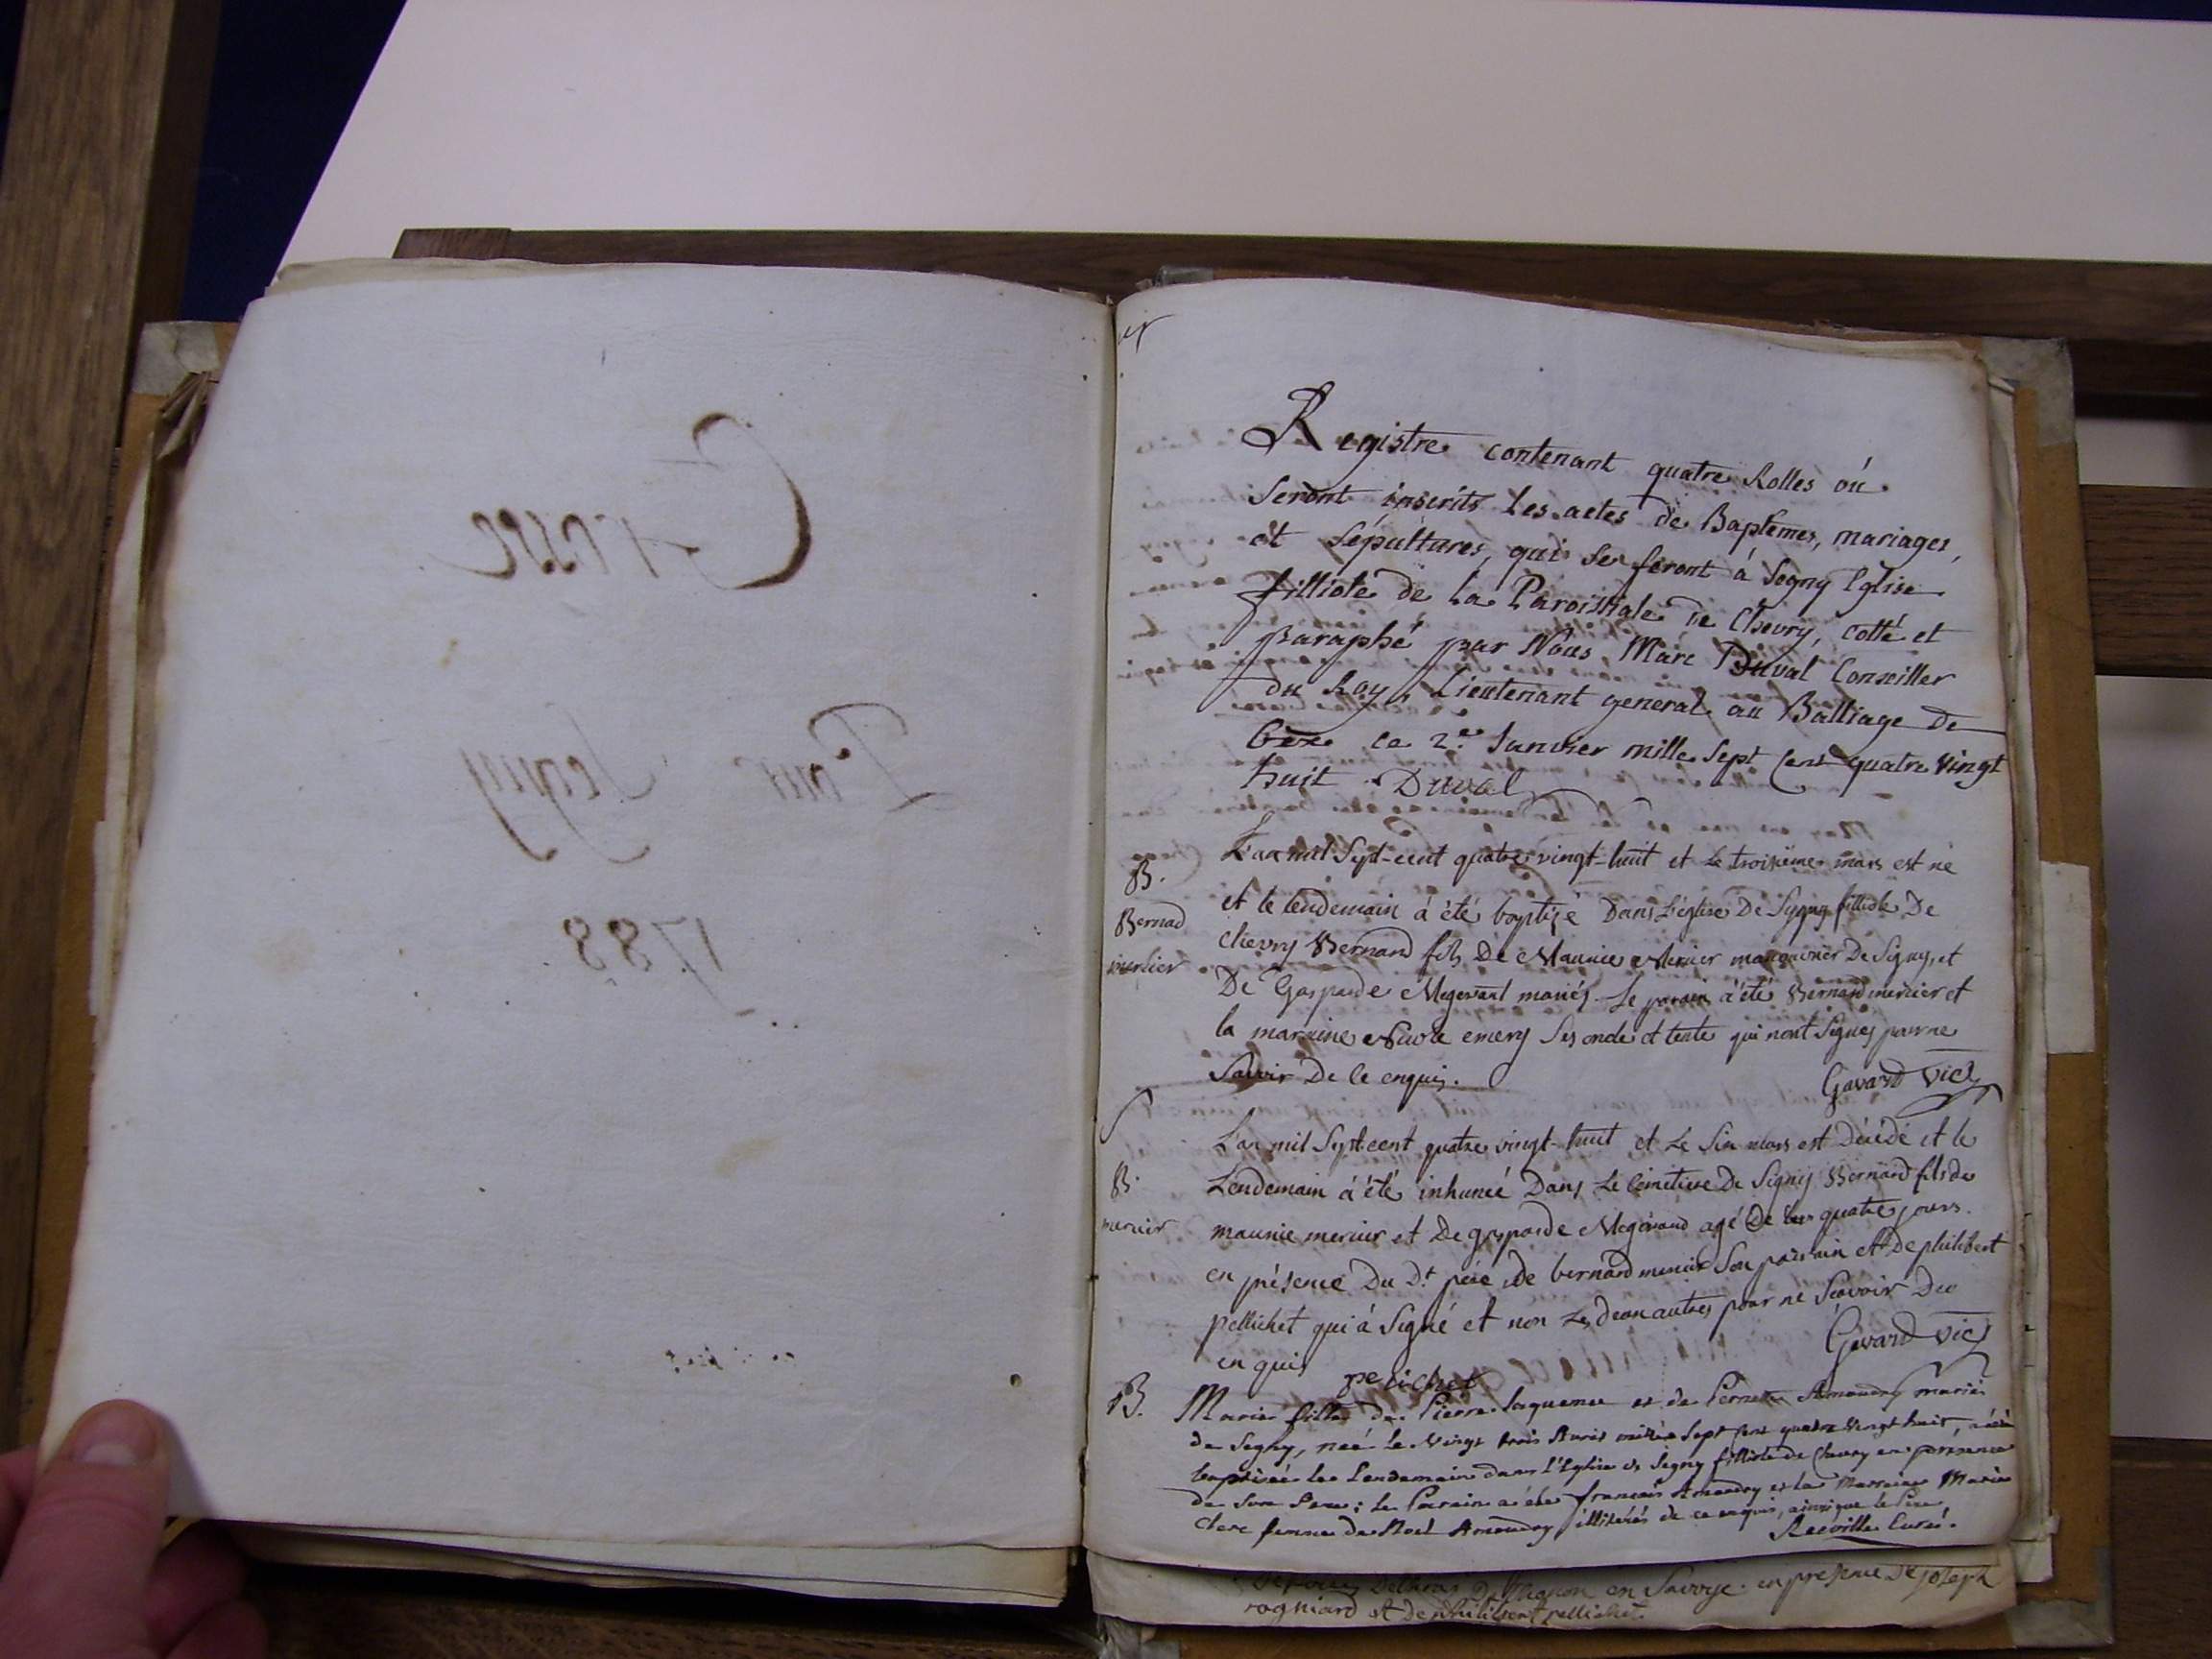 Grosse
Pour Segny
1788
Registre contenant quatre Rolles où
seront inscrits les actes de Baptemes, mariages,
et sépultures, qui se feront à Segny Eglise
filliole de la Paroissiale de Chevry, cotté et
paraphé par Nous, Marc Duval Conseiller
du Roy, Lieutenant general au Balliage de
Gex ce 2e. Janvier mille sept cent quatre vingt
huit. Duval
L'an mil sept-cent quatre vingt-huit et le troisieme mars est né
B.
et le lendemain à été baptizé Dans l'église De Segny filliole De
Bernad
chevry Bernard fils De Maurice Mercier manouvrier De Signy, et
mercier
De Gasparde Megevand mariés. Le parain à été Bernard mercier et
la marraine Nicole emery ses oncle et tente qui nont signes pour ne
savoir De ce enquis.
Gavard vic
L'an mil sept cent quatre vingt-huit et le six mars est Décédé et le
Lendemain à été inhumé Dans le Cimetiere De Signy Bernard fils de
B.
maurice mercier et De gasparde Megévand agé De quatre jours.
mercier
en présence Du Dt. père De bernard mercier son parrain et De philibert
pellichet qui à signé et non les deux autres pour ne sçavoir De ce
enquis pelichet
Gavard vic
B.
Marie fille de Pierre Jaquemet et de Pernette Amaudry mariés
de Segny, née le vingt trois Avril mille sept cent quatre vingt huit, a été
baptisée le Lendemain dans l'Eglise de Segny filliole de Chevry en présence
de son Pere; le Parain a été françois Amaudry et la Marraine Marie
Clerc femme de Noel Amaudry illitérés de ce enquis, ainsi que le Pere
Reeville Curé.
en Savoye. en presence De joseph
rogniard et de philibert pellichet.